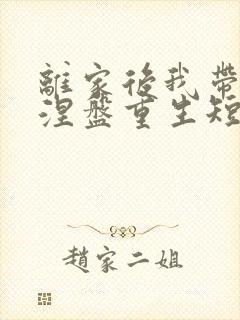 離家後我帶
涅盤重生短
趙家二姐